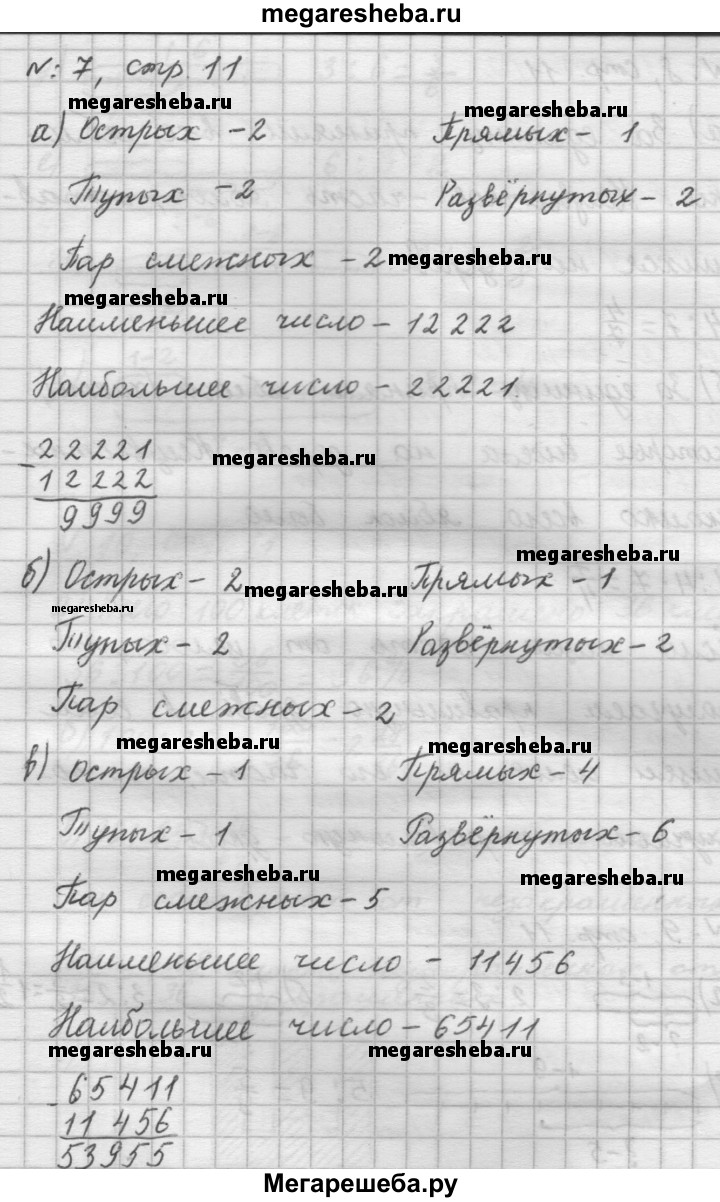 megaresheba.ru
№: 7, стр. 11
megaresheba.ru megaresheba.ru
а) Острых - 2 Прямых - 1
Тупых - 2 Развёрнутых - 2
Пар смежных - 2 megaresheba.ru
megaresheba.ru
Наименьшее число - 12222
Наибольшее число - 22221
- 22221
megaresheba.ru
12222
9999
megaresheba.ru
б) Острых - 2 megaresheba.ru Прямых - 1
megaresheba.ru
Тупых - 2 Развёрнутых - 2
Пар смежных - 2
megaresheba.ru megaresheba.ru
в) Острых - 1 Прямых - 4
Тупых - 1 Развёрнутых - 6
megaresheba.ru megaresheba.ru
Пар смежных - 5
Наименьшее число - 11456
Наибольшее число - 65411
megaresheba.ru megaresheba.ru
- 65411
11456
53955
Мегарешеба.ру